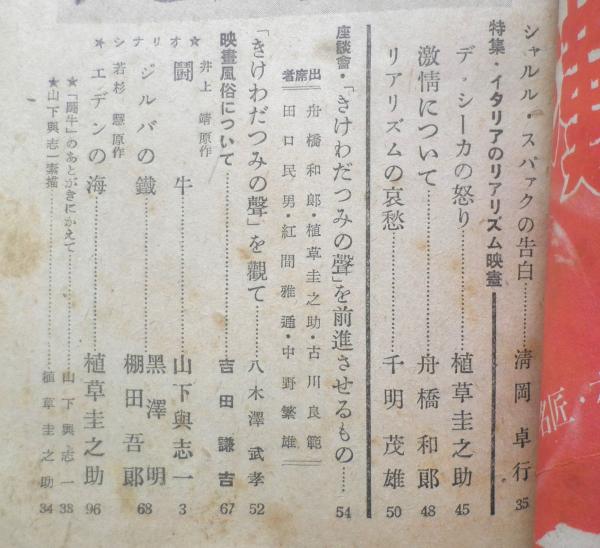 シャルル・スパァクの告白………清岡卓行 35
特集・イタリアのリアリズム映畫
デ・シーカの怒り………植草圭之助 45
激情について………舟橋和郎 48
リアリズムの哀愁………千明茂雄 50
座談會・「きけわだつみの聲」を前進させるもの……54
出席者 舟橋和郎・植草圭之助・古川良範
田口民男・紅間雅通・中野繁雄
「きけわだつみの聲」を觀て………八木澤武孝 52
映畫風俗について………吉田謙吉 67
シナリオ
★井上靖原作
鬪牛………山下與志一 3
★ジルバの鐵………黑澤明 棚田吾郎 68
若杉慧原作
★エデンの海………植草圭之助 96
★「鬪牛」のあとがきにかえて………山下與志一 38
★山下與志一素描………植草圭之助 34
名匠・